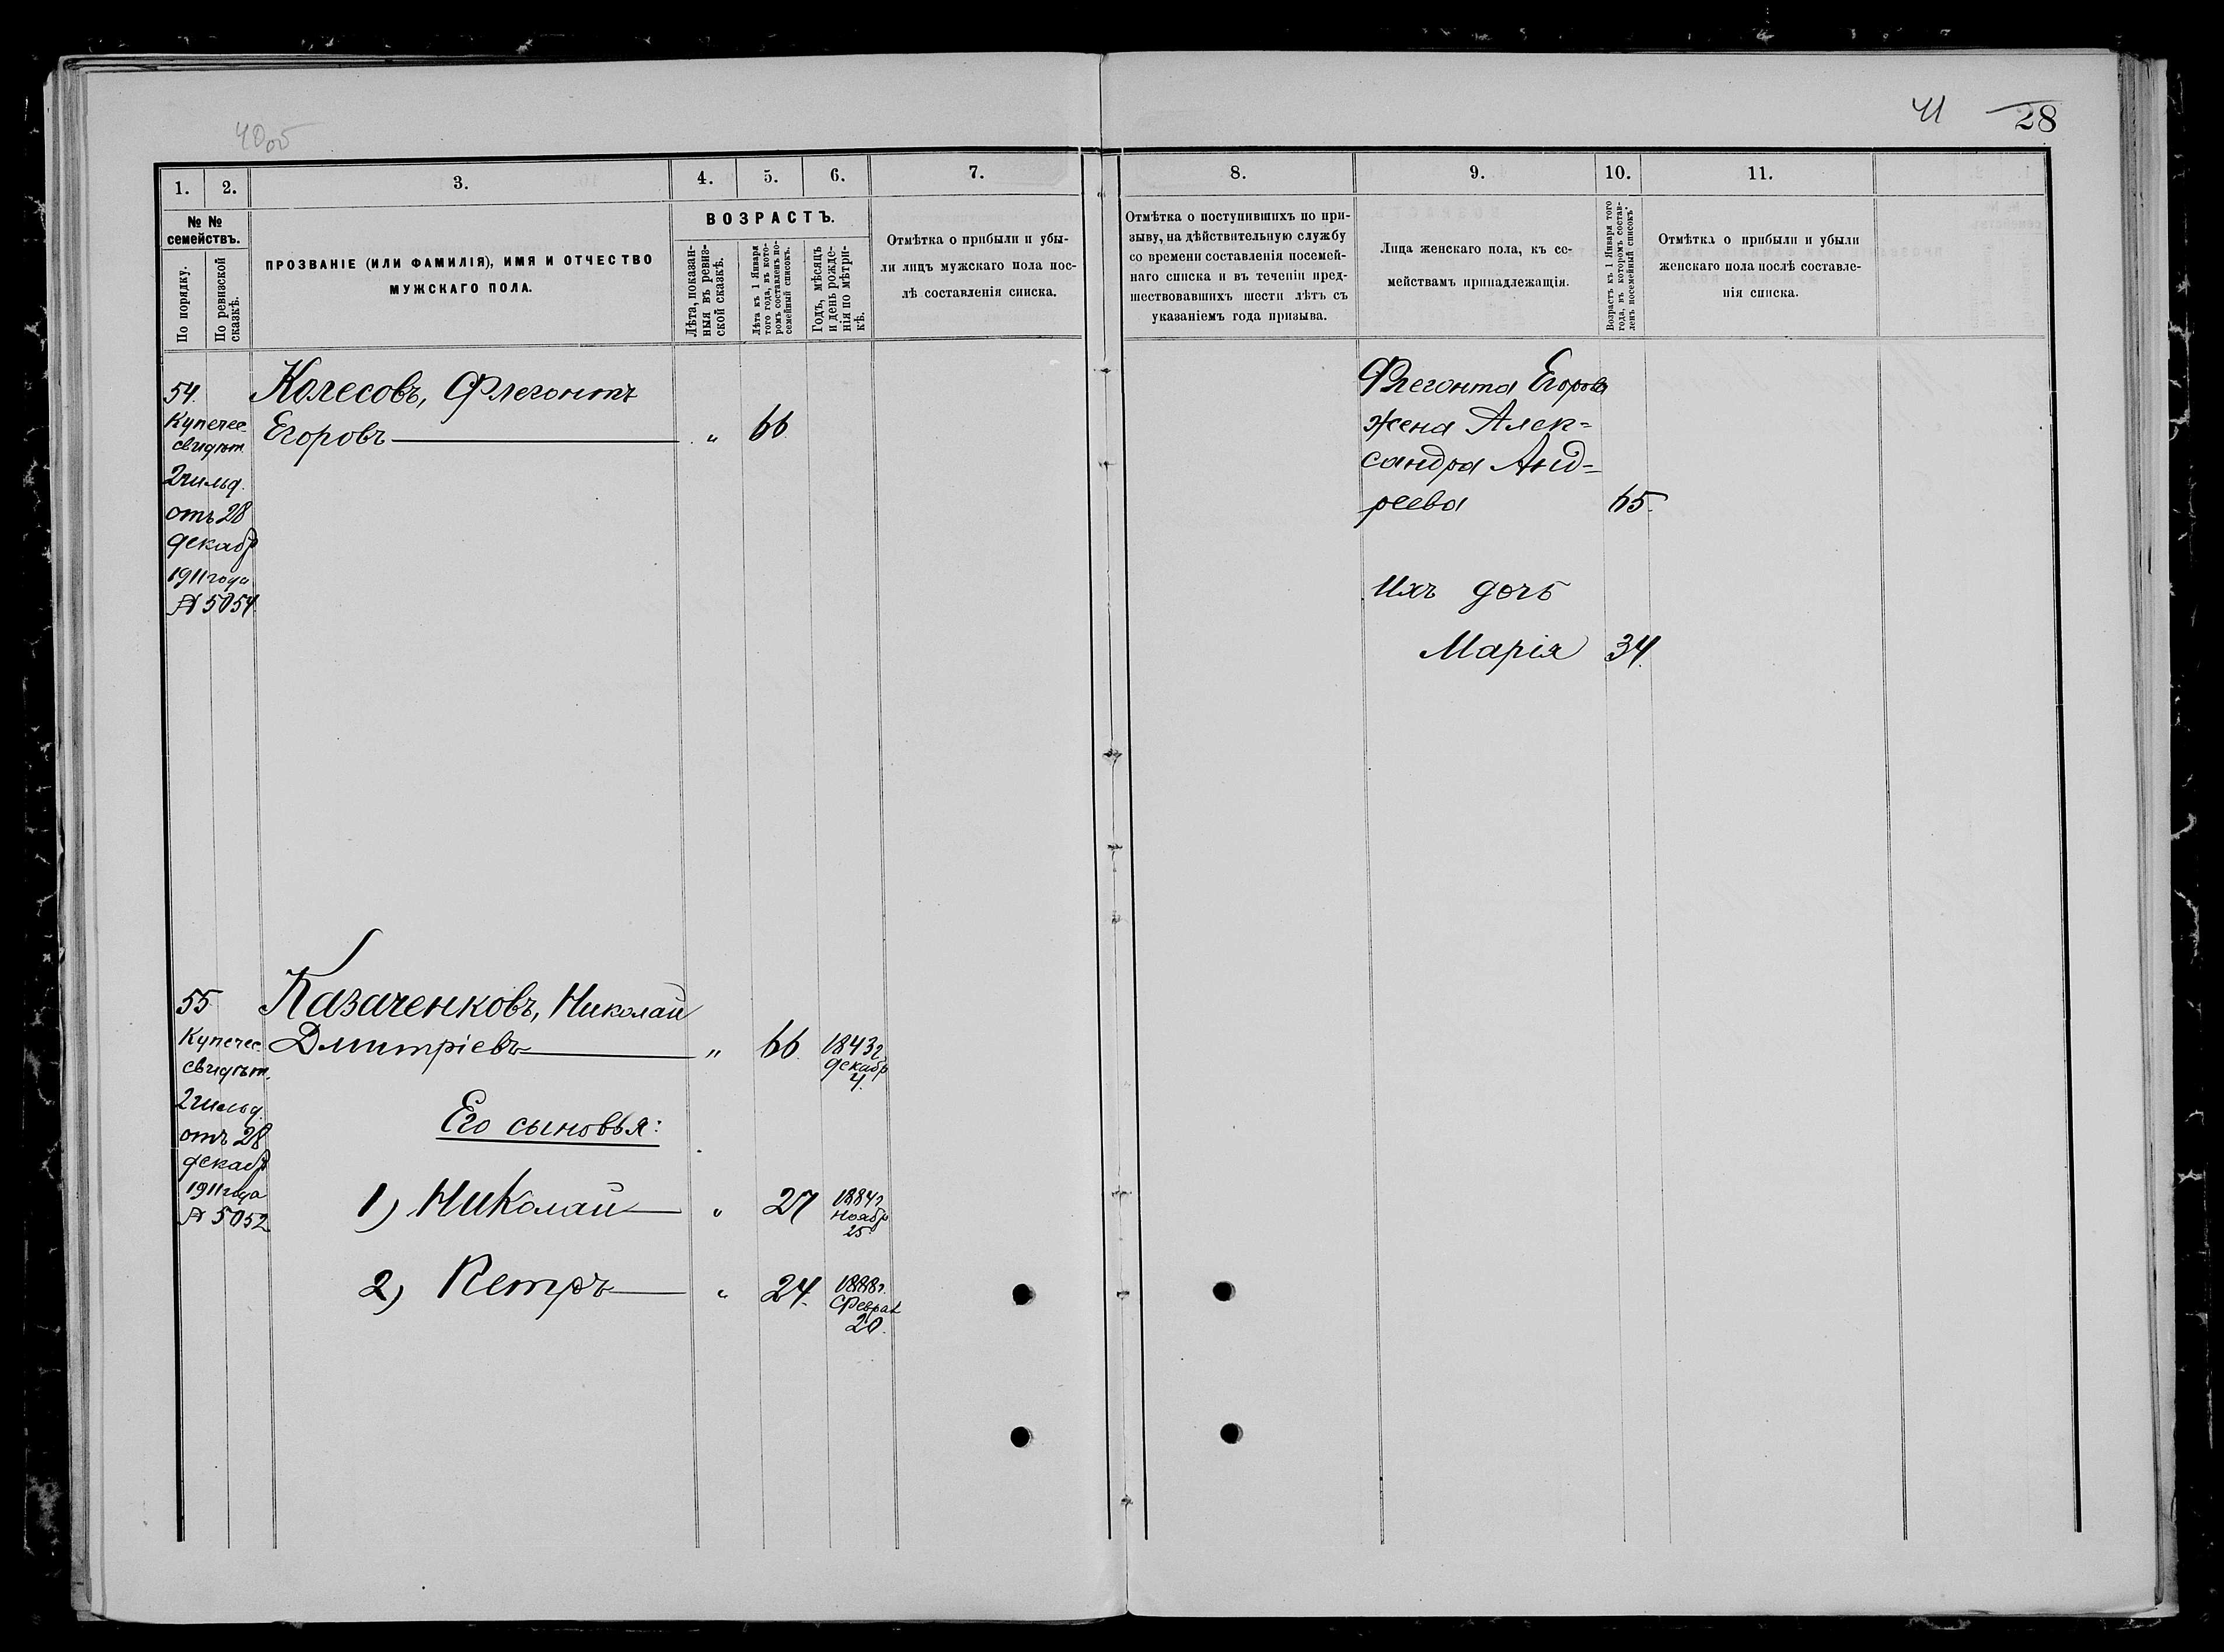 40об
41 28
1. 2. 3. 4. 5. 6. 7. 8. 9. 10. 11.
№ №
семействъ.
По порядку.
По ревизской
сказкѣ.
ПРОЗВАНІЕ (ИЛИ ФАМИЛІЯ), ИМЯ И ОТЧЕСТВО
МУЖСКАГО ПОЛА.
ВОЗРАСТЪ.
Лѣта, показан-
ныя въ ревиз-
ской сказкѣ.
Лѣта къ 1 Января
того года, въ кото-
ромъ составленъ по-
семейный списокъ.
Годъ, мѣсяцъ
и день рожде-
нія по мѣтри-
кѣ.
Отмѣтка о прибыли и убы-
ли лицъ мужскаго пола пос-
лѣ составленія списка.
Отмѣтка о поступившихъ по при-
зыву, на дѣйствительную службу
со времени составленія посемей-
наго списка и въ теченіи пред-
шествовавшихъ шести лѣтъ съ
указаніемъ года призыва.
Лица женскаго пола, къ се-
мействамъ принадлежащія.
Возрастъ къ 1 Января того
года, въ которомъ состав-
ленъ посемейный списокъ.
Отмѣтка о прибыли и убыли
женскаго пола послѣ составле-
нія списка.
54. Колесовъ, Флегонтъ
Егоровъ — " 66.
Купечес.
свидѣт.
2 гильд.
отъ 28
декабр
1911 года
№ 5054.
Флегонта Егорова
жена Алек=
сандра Анд=
реева 65.
Ихъ дочь
Марія 34.
55 Казаченковъ, Николай
Дмитріевъ — " 66. 1843 г.
декабр
4.
Купечес.
свидѣт.
2 гильд.
отъ 28
декабр
1911 года
№ 5052
Его сыновья:
1) Николай — " 27 1884 г.
Ноябр
25
2) Петръ — " 24. 1888 г.
Феврал
20.